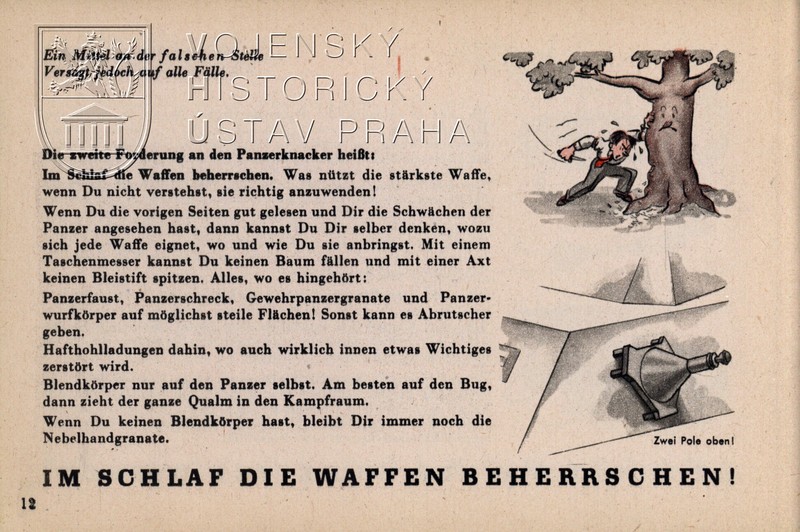 Ein Mittel an der falschen Stelle
Versagt jedoch auf alle Fälle.
VOJENSKÝ
HISTORICKÝ
ÚSTAV PRAHA
Die zweite Forderung an den Panzerknacker heißt:
Im Schlaf die Waffen beherrschen. Was nützt die stärkste Waffe,
wenn Du nicht verstehst, sie richtig anzuwenden!
Wenn Du die vorigen Seiten gut gelesen und Dir die Schwächen der
Panzer angesehen hast, dann kannst Du Dir selber denken, wozu
sich jede Waffe eignet, wo und wie Du sie anbringst. Mit einem
Taschenmesser kannst Du keinen Baum fällen und mit einer Axt
keinen Bleistift spitzen. Alles, wo es hingehört:
Panzerfaust, Panzerschreck, Gewehrpanzergranate und Panzer-
wurfkörper auf möglichst steile Flächen! Sonst kann es Abrutscher
geben.
Hafthohlladungen dahin, wo auch wirklich innen etwas Wichtiges
zerstört wird.
Blendkörper nur auf den Panzer selbst. Am besten auf den Bug,
dann zieht der ganze Qualm in den Kampfraum.
Wenn Du keinen Blendkörper hast, bleibt Dir immer noch die
Nebelhandgranate.
Zwei Pole oben!
IM SCHLAF DIE WAFFEN BEHERRSCHEN!
12